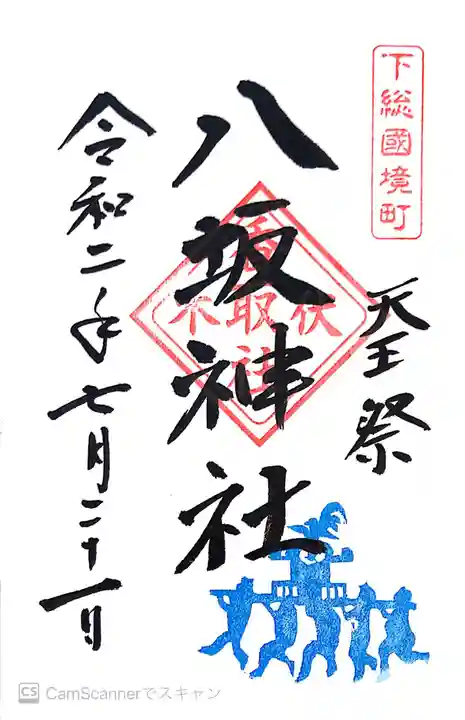 下総國境町
天王祭
八坂神社
香取社
伏木
令和二年七月二十一日
CS CamScannerでスキャン